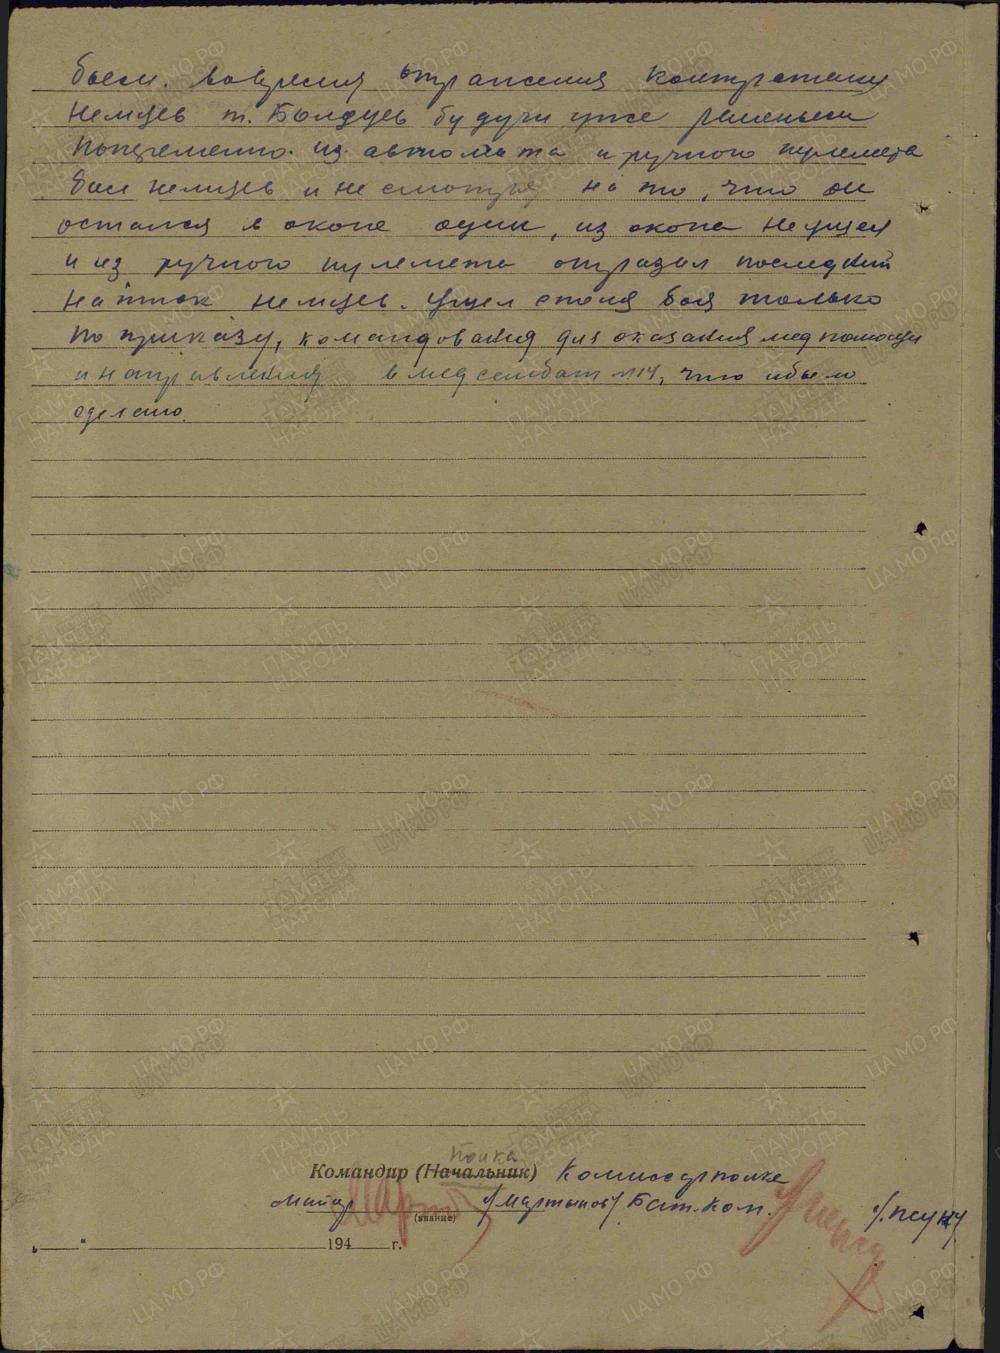 боем. вовремя отражения контратаки
немцев т. Болдуев будучи уже раненым
попеременно. из автомата и ручного пулемета
бил немцев и не смотря на то, что он
остался в окопе один, из окопа не ушел
и из ручного пулемета отразил последний
натиск немцев. Ушел споля боя только
по приказу, командования для оказания медпомощи
и направления в медсанбат №14, что и было
сделано.
полка
Командир (Начальник) Комиссар полка
майор /Мартынов/ Бат. Ком.
(звание)
„ “ 194 г.